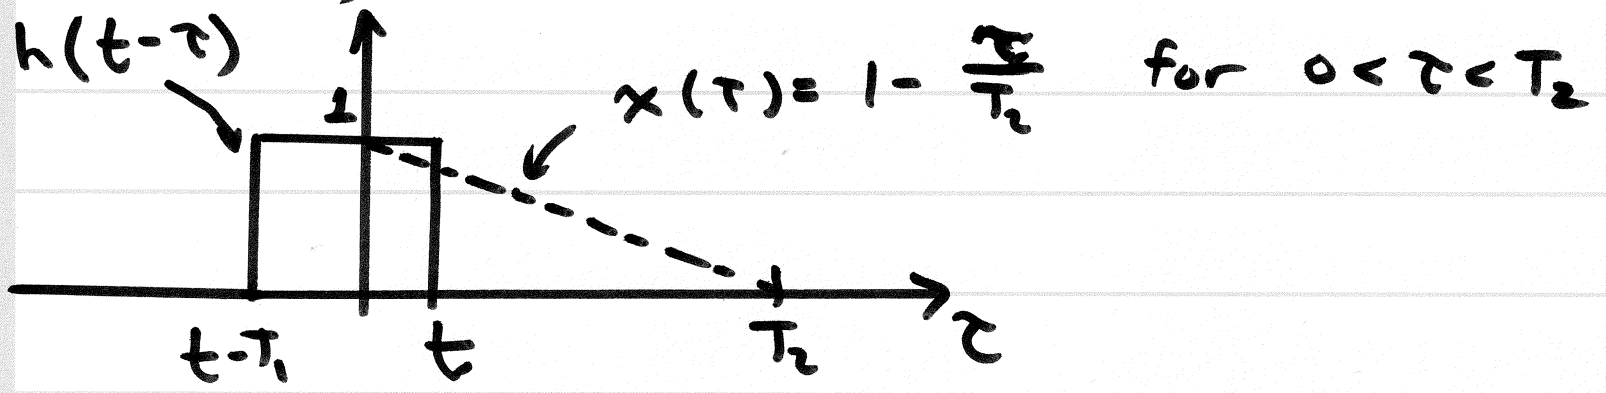 h(t-τ)
1
x(τ) = 1 - τ/T₂ for 0 < τ < T₂
t-T₁
t
T₂
τ